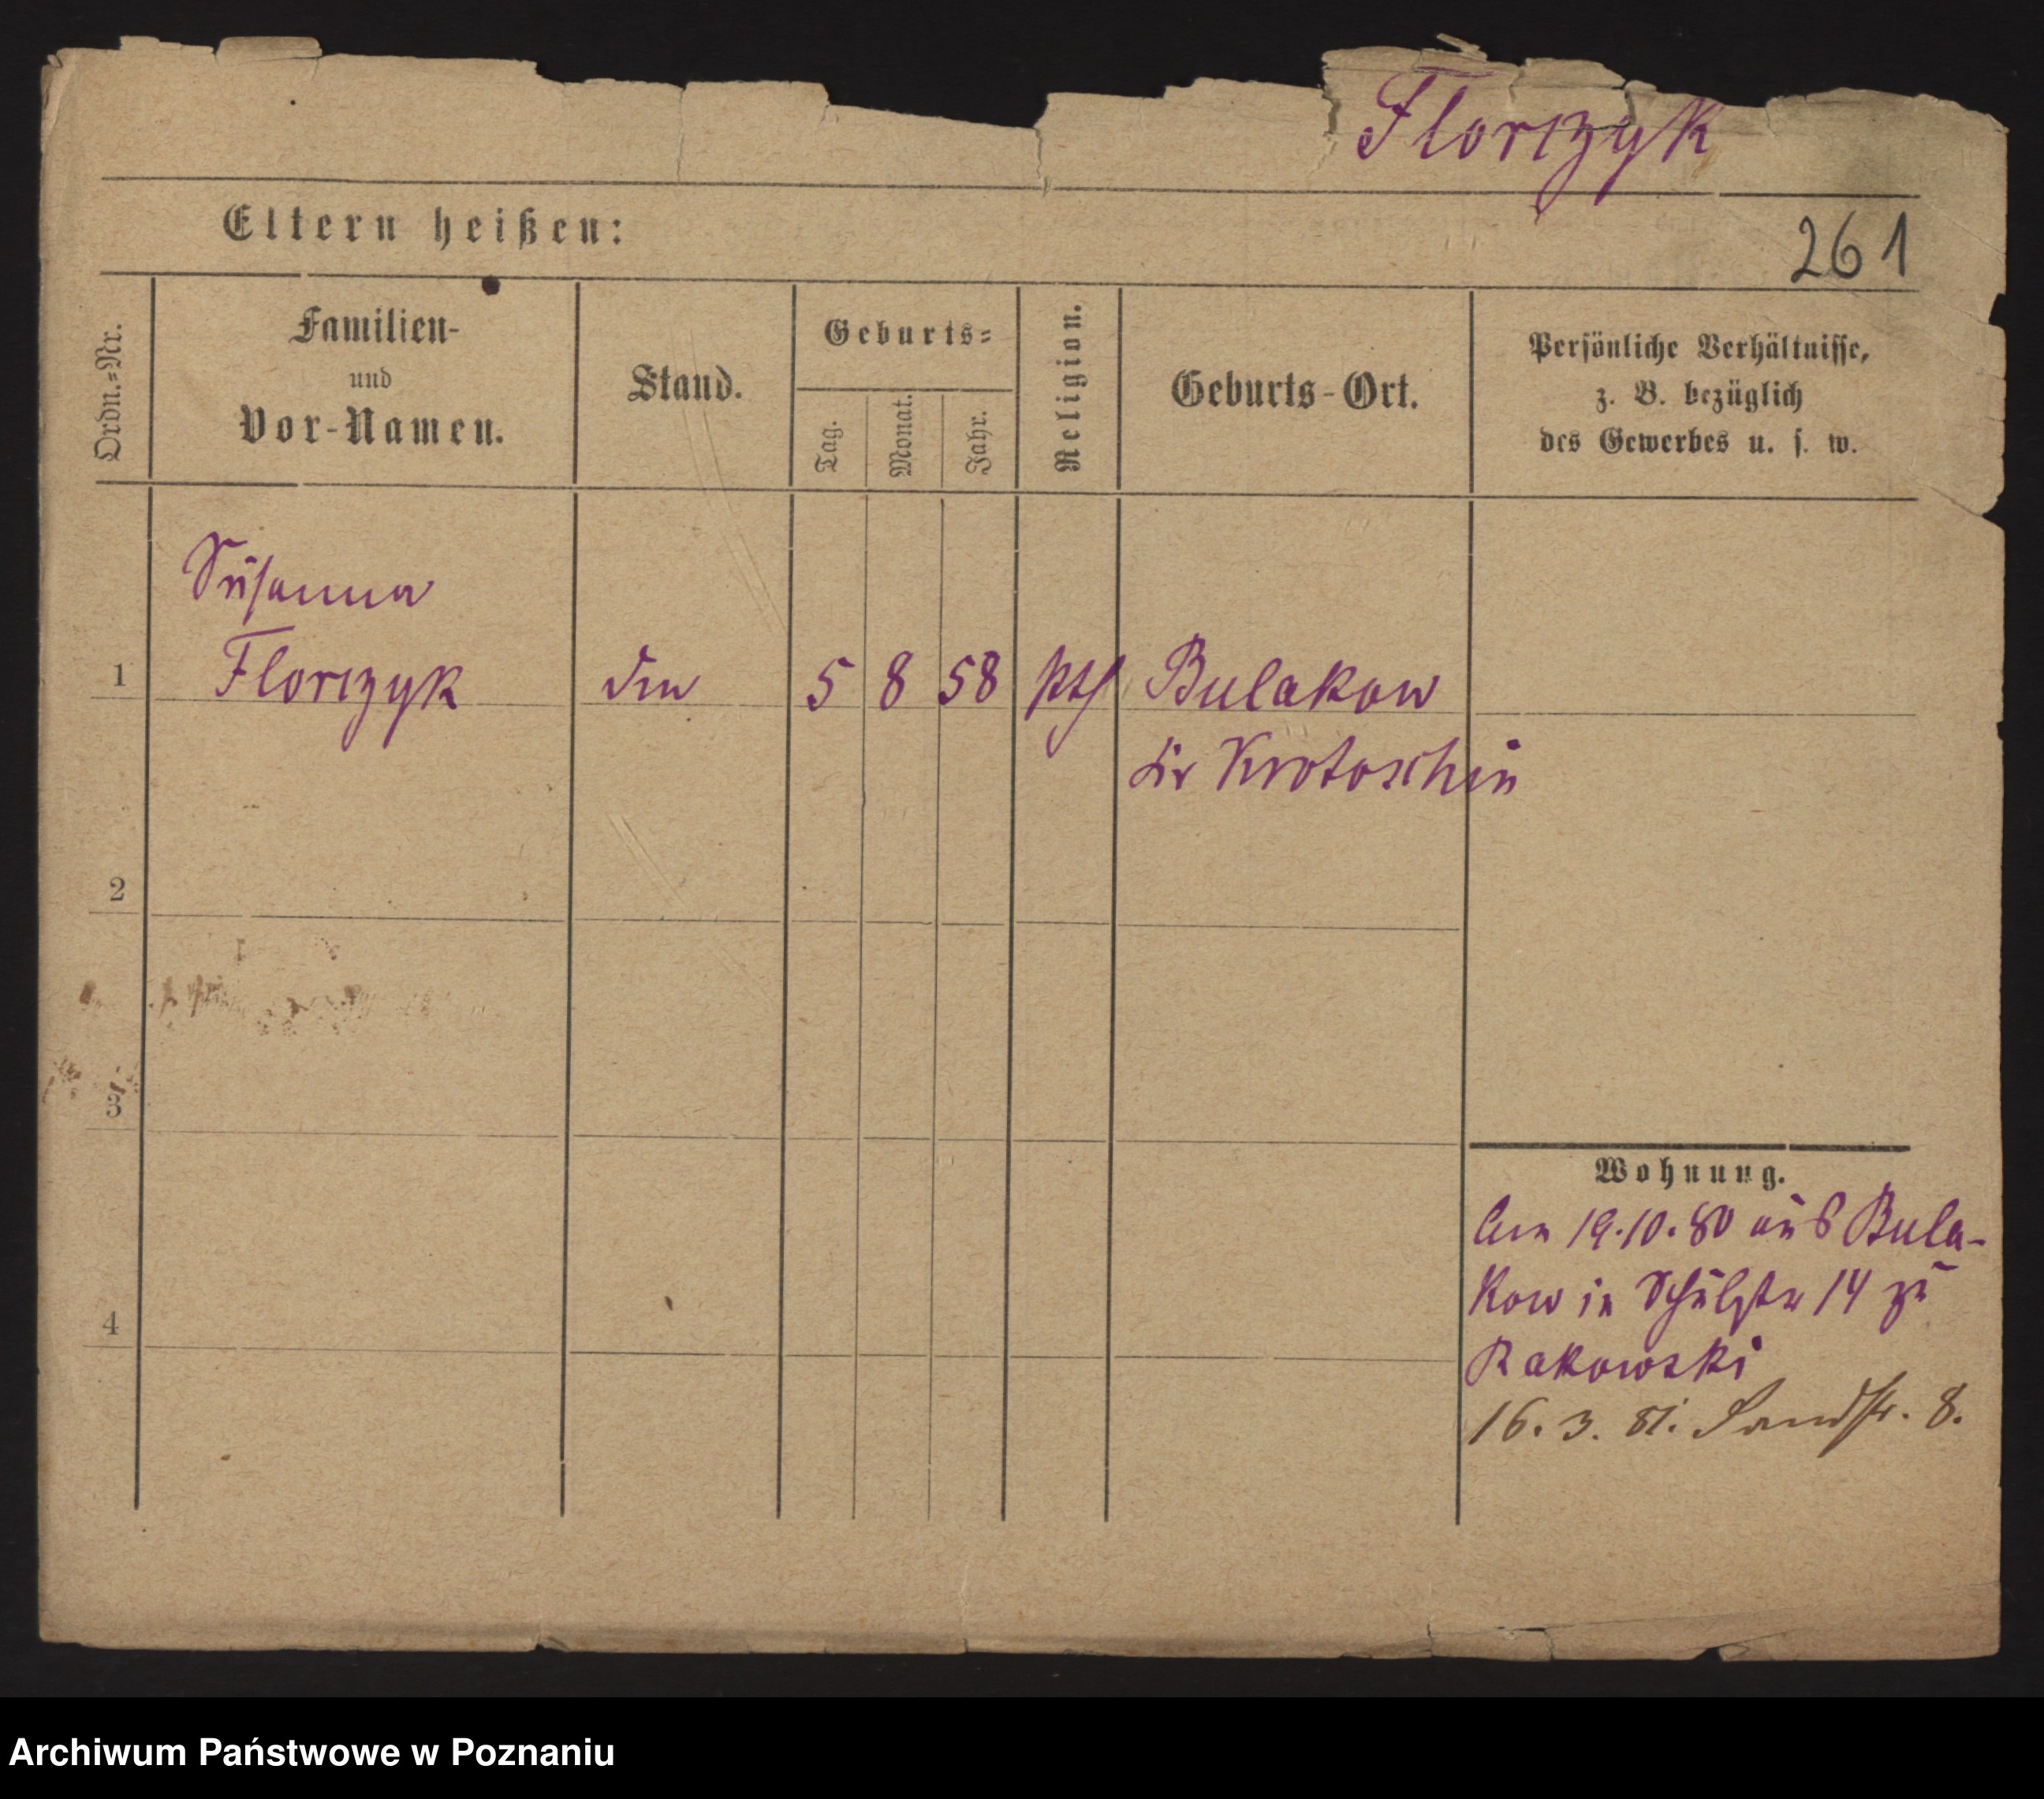 Florczyk
Eltern heißen:
261
Ordn.=Nr.
Familien-
und
Vor-Namen.
Stand.
Geburts=
Tag.
Monat.
Jahr.
Religion.
Geburts-Ort.
Persönliche Verhältnisse,
z. B. bezüglich
des Gewerbes u. s. w.
Susanna
1 Florczyk 5 8 58 kth Bulakow
Kr Krotoschin
2
3
4
Wohnung.
Am 19.10.80 aus Bula-
kow in Schulstr 14 zu
Rakowski
16. 3. 81. Sandstr. 8.
Archiwum Państwowe w Poznaniu